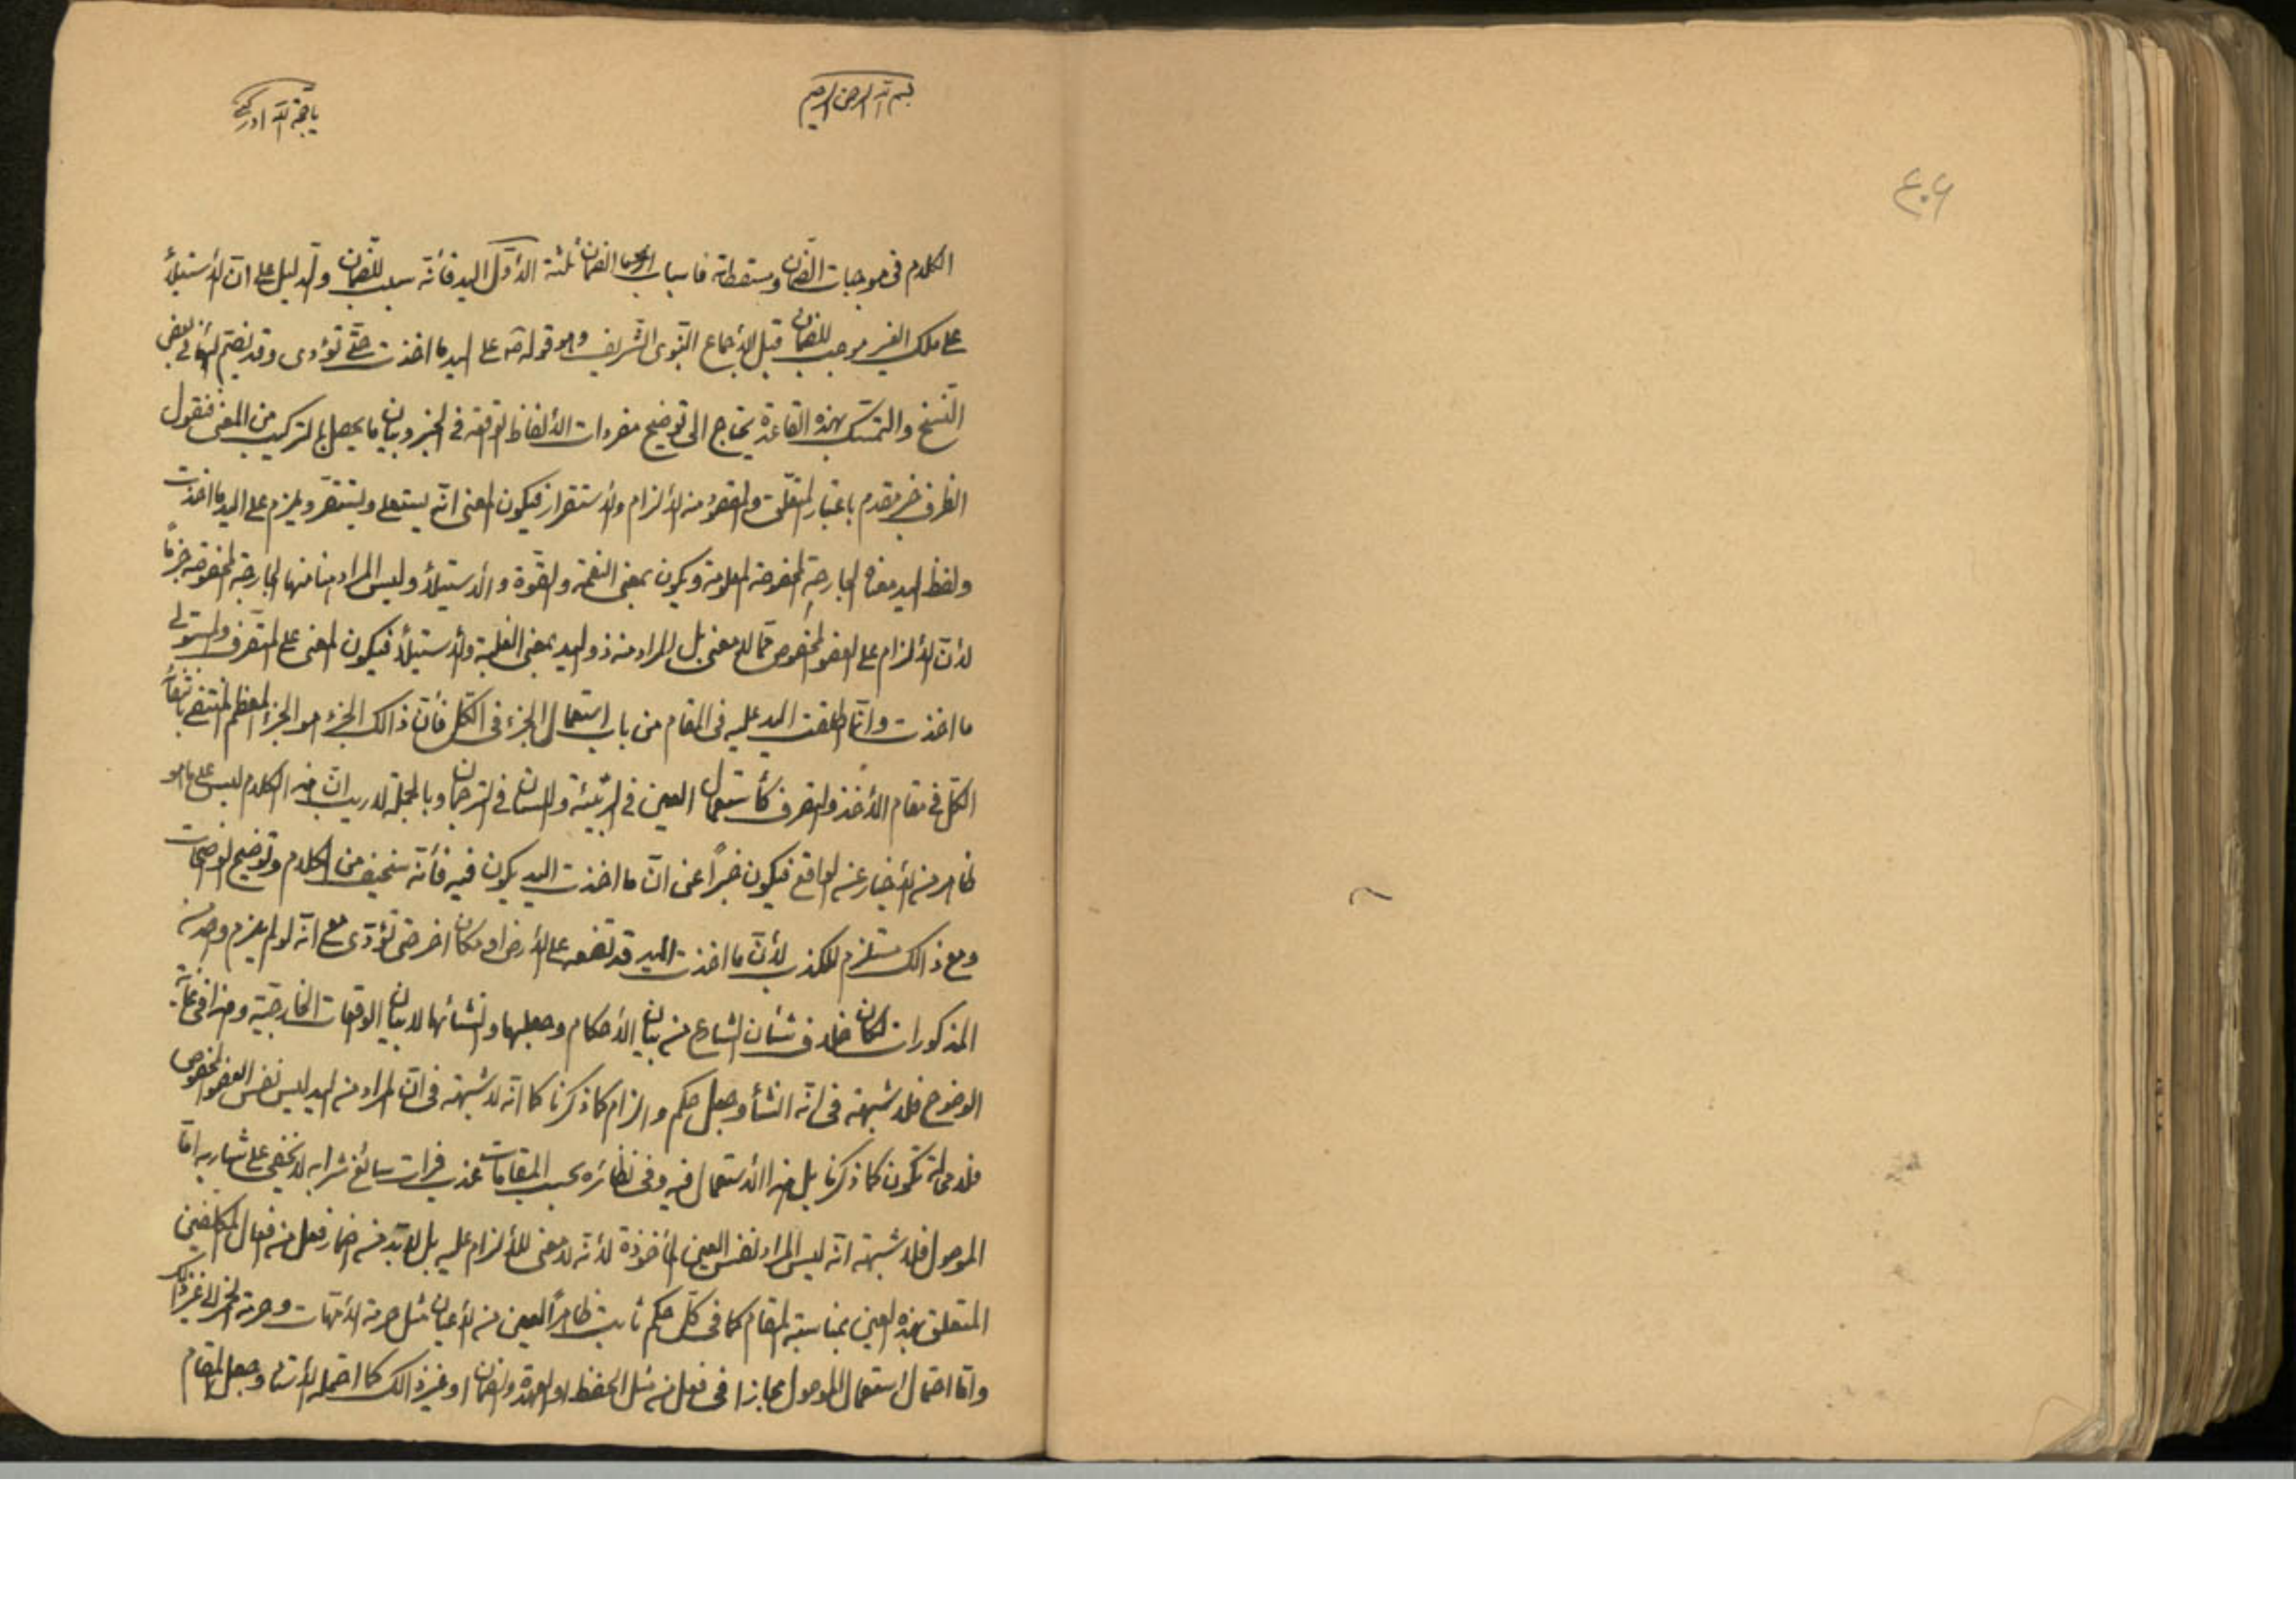 بسم الله الرحمن الرحيم
يا حجة الله ادركني
الكلام في موجبات الضمان ومسقطاته فاسباب الضمان ثلثة الأول اليد فأنه سبب للضمان والدليل على ان الأستيلأ
على ملك الغير موجب للضمان قبل الأجماع النبوي الشريف وهو قوله ص على اليد ما اخذت حتى تؤدى وقد يضم اليها في بعض
النسخ والتمسك بهذه القاعدة يحتاج الى توضيح مفردات الألفاظ الواقعة في الخبر وبيان ما يحصل بالتركيب من المعنى فنقول
الظرف خبر مقدم باعتبار المتعلق والمقصود منه الألزام والأستقرار فيكون المعنى انه يستعلى ويستقر ويلزم على اليد ما اخذت
ولفظ اليد معناه الجارحة المخصوصة المعلومة ويكون بمعنى النعمة والقوة والأستيلأ وليس المراد هنا منها الجارحة المخصوصة جزماً
لأن الألزام على العضو المخصوص مما لا معنى بل المراد منه ذو اليد بمعنى الغلبة والأستيلأ فيكون المعنى على المتصرف والمستولى
ما اخذت وانما اطلقت اليد عليه في المقام من باب استعمال الجزء في الكل فأن ذالك الجزء هو الجزء المعظم المنتفى بانتفائه
الكل في مقام الأخذ والتصرف كأستعمال العين في الربيئة واللسان في الترجمان وبالجملة لا ريب ان هذا الكلام ليس على ما هو
ظاهر منه الأخبار عنه الواقع فيكون خبراً عن ان ما اخذت اليد يكون فيه فأنه سخيف من الكلام وتوضيح الواضحات
ومع ذالك مستلزم للكذب لأن ما اخذت اليد قد تضعه على الأرض او مكان اخر حتى تؤدى مع انه لو لم يلزم واحد منه
المذكورات لكان خلاف شأن الشارع من بيان الأحكام وجعلها وانشائها لا بيان الوقعات الخارجية وهذا في غاية
الوضوح فلا شبهة في انه انشأ وجعل حكم والزام كما ذكرنا كما انه لا شبهة في ان المراد من اليد ليس نفس العضو المخصوص
فلا محالة تكون كما ذكرنا بل هذا الأستعمال فيه وفي نظائره بحسب المقامات عذب فرات سائغ شرابه لا يخفى على شاربه اما
الموصول فلا شبهة انه ليس المراد نفس العين المأخوذة لأنه لا معنى للألزام عليه بل لا بد من اضمار فعل من افعال المكلفين
المتعلق بهذه العين بمناسبة المقام كما في كل حكم ثابت ظاهراً لعين من الأعيان مثل حرمة الأمهات وحرمة الخمر الى غير ذالك
واما احتمال استعمال الموصول مجازا في فعل منه مثل الحفظ او العهدة والضمان او غير ذالك كما احتمله الأستاد وجعل المقام
۶۰۶